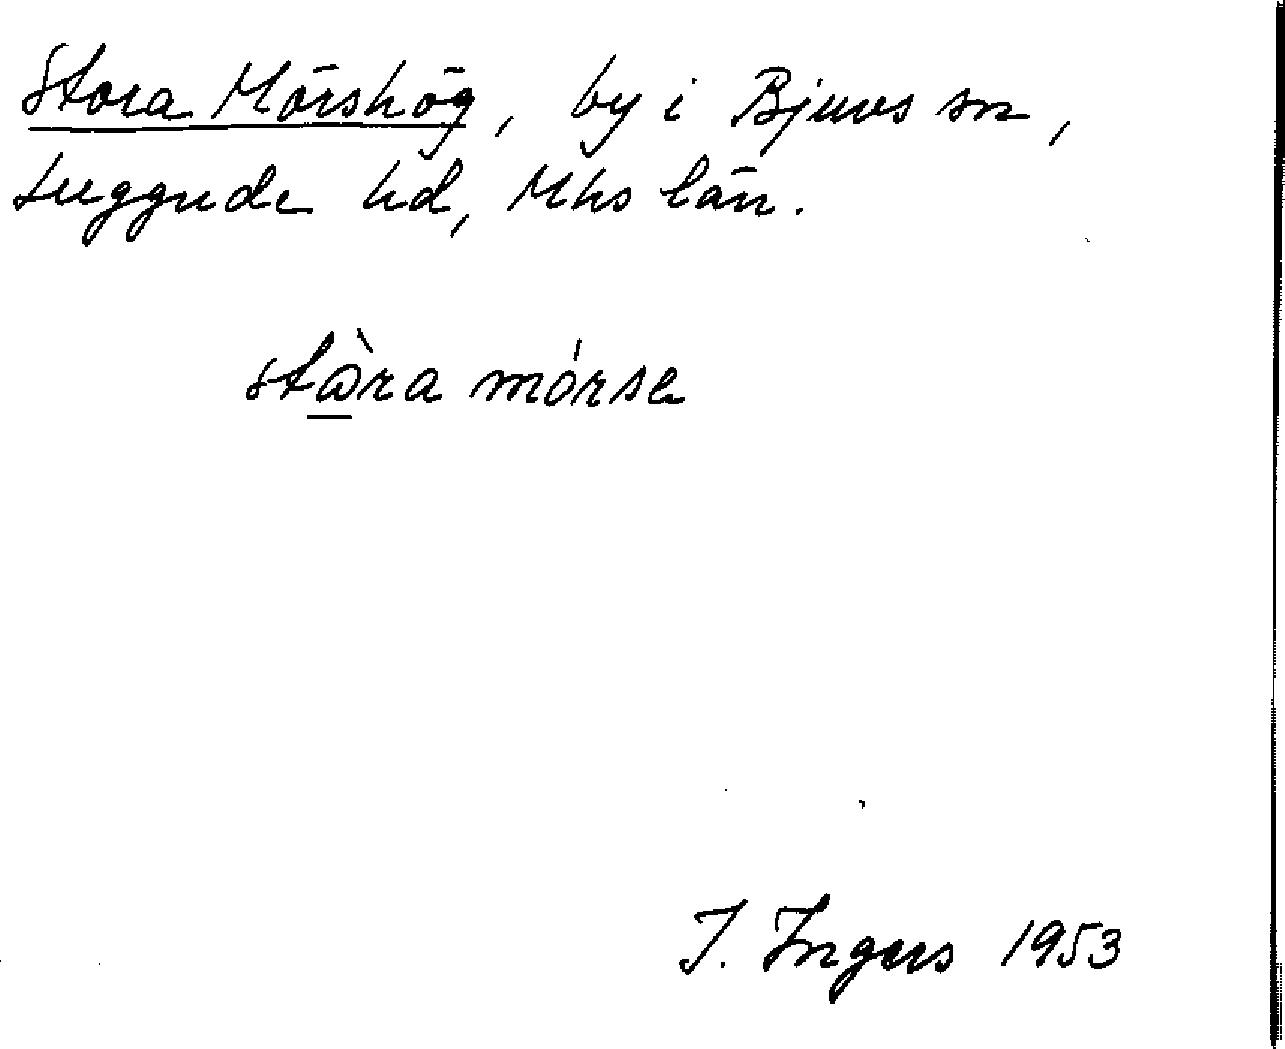 Stora Mörshög, by i Bjuvs sn,
Luggude hd, Mhs län.
stòra mórse
I. Ingers 1953